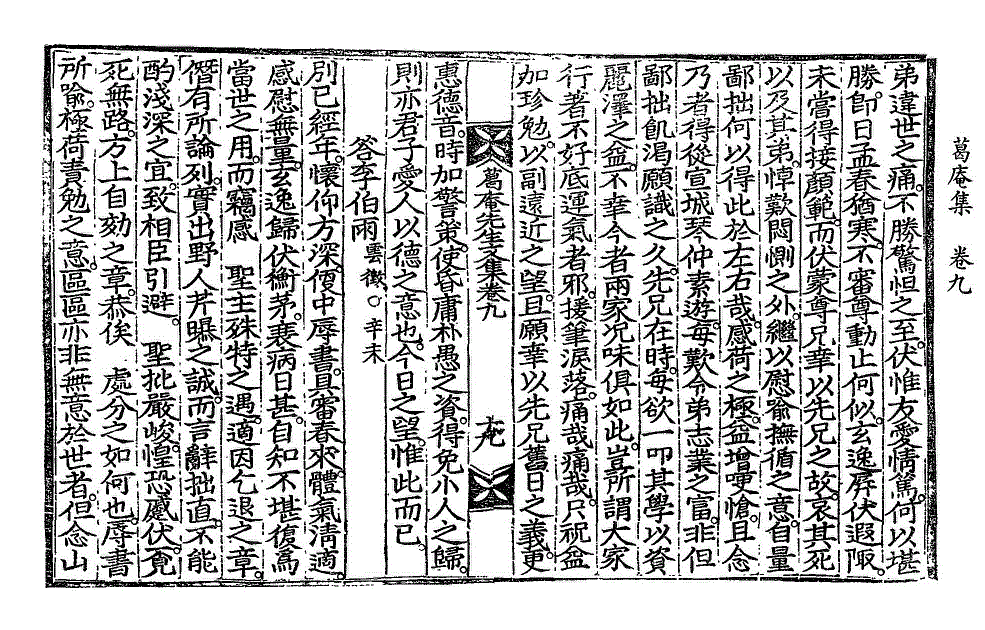 葛庵集　卷九
弟違世之痛。不勝驚怛之至。伏惟友愛情篤。何以堪
勝。卽日孟春猶寒。不審尊動止何似。玄逸屛伏遐陬。
未嘗得接顔範。而伏蒙尊兄幸以先兄之故。哀其死
以及其弟。悼歎悶惻之外。繼以慰喩撫循之意。自量
鄙拙何以得此於左右哉。感荷之極。益增哽愴。且念
乃者得從宣城琴仲素遊。每歎令弟志業之富。非但
鄙拙飢渴願識之久。先兄在時。每欲一叩其學以資
麗澤之益。不幸今者兩家況味俱如此。豈所謂大家
行著不好底運氣者邪。援筆淚落。痛哉痛哉。只祝益
加珍勉。以副遠近之望。且願幸以先兄舊日之義。更
葛庵先生文集卷九　十九
惠德音。時加警策。使昏庸朴愚之資。得免小人之歸。
則亦君子愛人以德之意也。今日之望。惟此而已。
答李伯雨 雲徵○辛未
別已經年。懷仰方深。便中辱書。且審春來。體氣淸適。
感慰無量。玄逸歸伏衡茅。衰病日甚。自知不堪復爲
當世之用。而竊感　聖主殊特之遇。適因乞退之章。
僭有所論列。實出野人芹曝之誠。而言辭拙直。不能
酌淺深之宜。致相臣引避。　聖批嚴峻。惶恐慼伏。覓
死無路。方上自劾之章。恭俟　處分之如何也。辱書
所喩。極荷責勉之意。區區亦非無意於世者。但念山